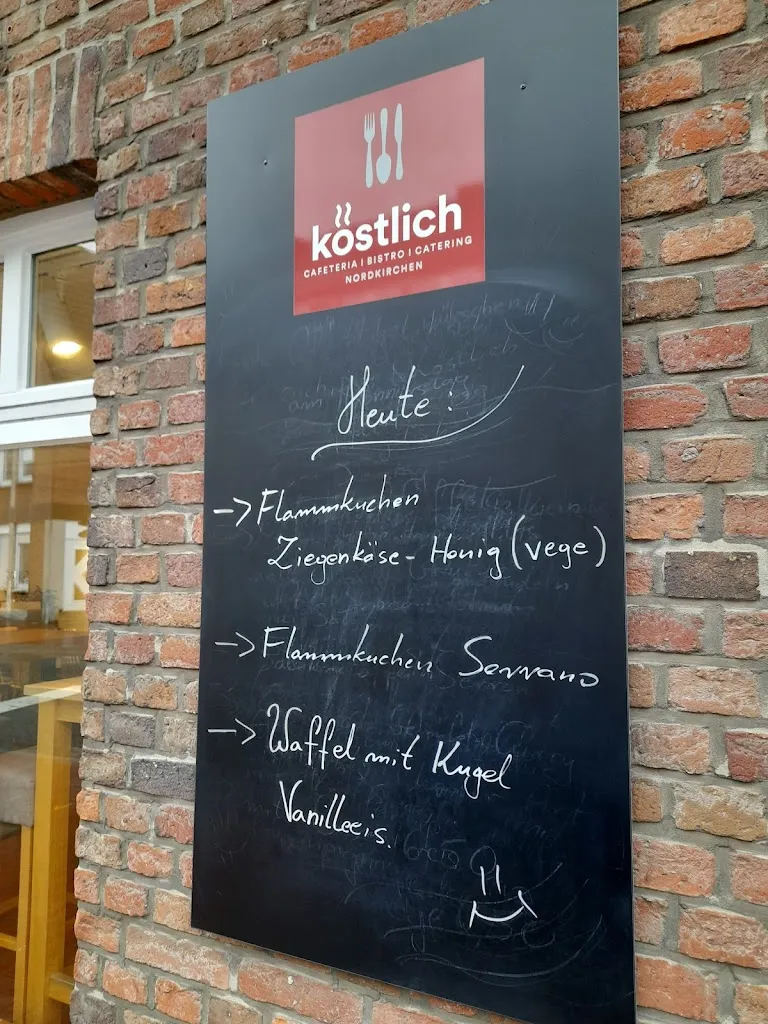 köstlich
CAFETERIA | BISTRO | CATERING
NORDKIRCHEN
Heute:
-> Flammkuchen
Ziegenkäse - Honig (vege)
-> Flammkuchen Serrano
-> Waffel mit Kugel
Vanilleeis.